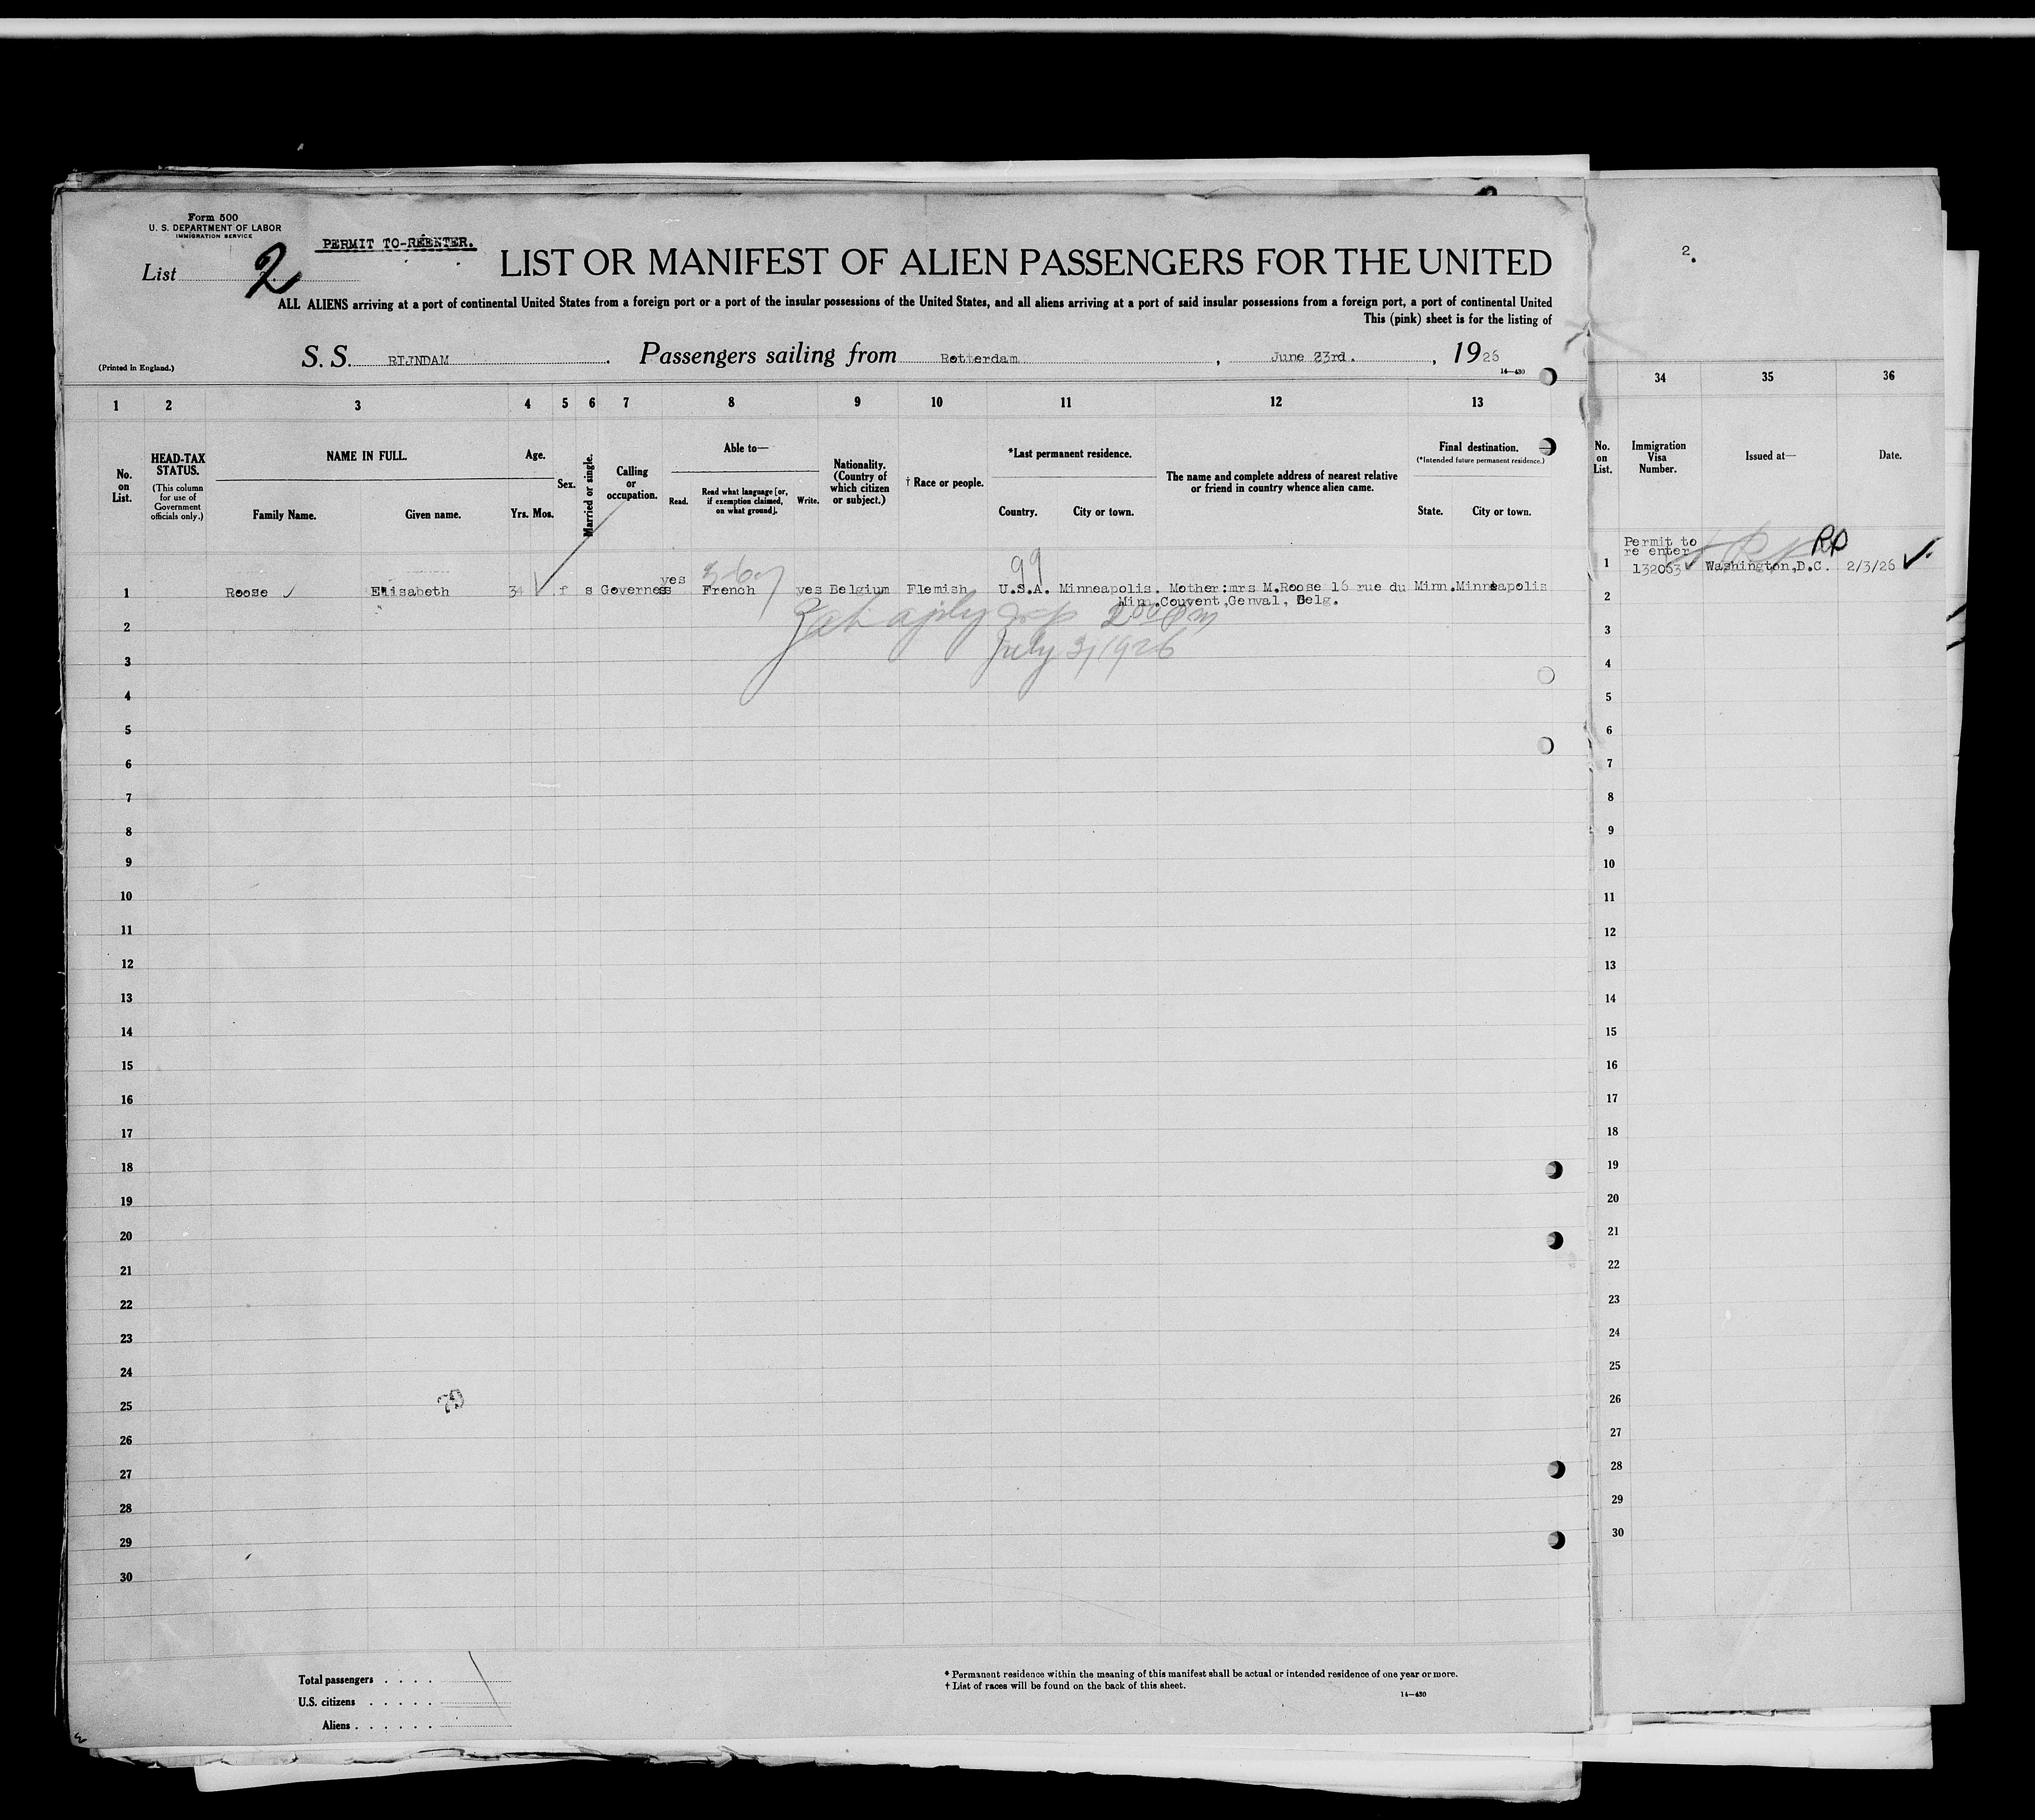 Form 500
U. S. DEPARTMENT OF LABOR
IMMIGRATION SERVICE
PERMIT TO-REENTER.
List 2
LIST OR MANIFEST OF ALIEN PASSENGERS FOR THE UNITED
ALL ALIENS arriving at a port of continental United States from a foreign port or a port of the insular possessions of the United States, and all aliens arriving at a port of said insular possessions from a foreign port, a port of continental United
This (pink) sheet is for the listing of
(Printed in England.)
S. S. RIJNDAM. Passengers sailing from Rotterdam, June 23rd., 1926
14—430
2.
1 2 3 4 5 6 7 8 9 10 11 12 13
34 35 36
No. on List.
HEAD-TAX STATUS.
(This column for use of Government officials only.)
NAME IN FULL.
Family Name. Given name.
Age.
Yrs. Mos.
Sex.
Married or single.
Calling or occupation.
Able to—
Read. Read what language [or, if exemption claimed, on what ground]. Write.
Nationality. (Country of which citizen or subject.)
† Race or people.
*Last permanent residence.
Country. City or town.
The name and complete address of nearest relative or friend in country whence alien came.
Final destination.
(*Intended future permanent residence.)
State. City or town.
No. on List.
Immigration Visa Number.
Issued at—
Date.
1 Roose Elisabeth 34 f s Governess yes French yes Belgium Flemish U.S.A. Minneapolis. Mother:mrs M.Roose 16 rue du Minn.Minneapolis
Minn.Couvent,Genval, Belg.
99
July 3, 1926
2
3
4
5
6
7
8
9
10
11
12
13
14
15
16
17
18
19
20
21
22
23
24
25
26
27
28
29
30
79
Permit to
re enter RP
1 132063 Washington,D.C. 2/3/26
2
3
4
5
6
7
8
9
10
11
12
13
14
15
16
17
18
19
20
21
22
23
24
25
26
27
28
29
30
Total passengers . . . .
U.S. citizens . . . . .
Aliens . . . . . .
* Permanent residence within the meaning of this manifest shall be actual or intended residence of one year or more.
† List of races will be found on the back of this sheet.
14—430